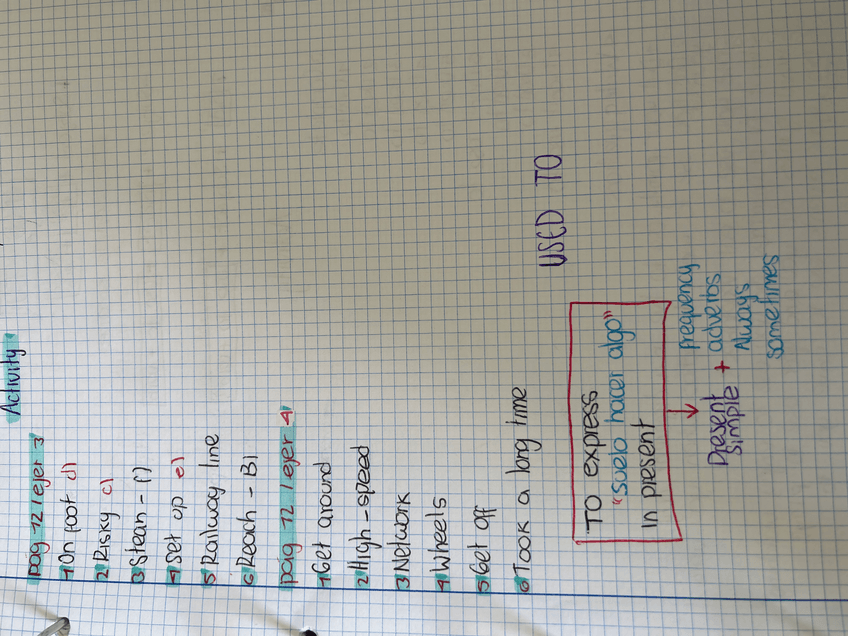 Activity
pag 12 / ejer 3
1 On foot d)
2 Risky c)
3 Stean - f)
4 Set up e)
5 Railway line
6 Reach - B)
paig 12 / ejer 4
1 Get around
2 High-speed
3 Network
4 Wheels
5 Get off
6 Took a long time
USED TO
TO express
"suelo hacer algo"
In present
Present simple + frequency adverbs
Always
sometimes